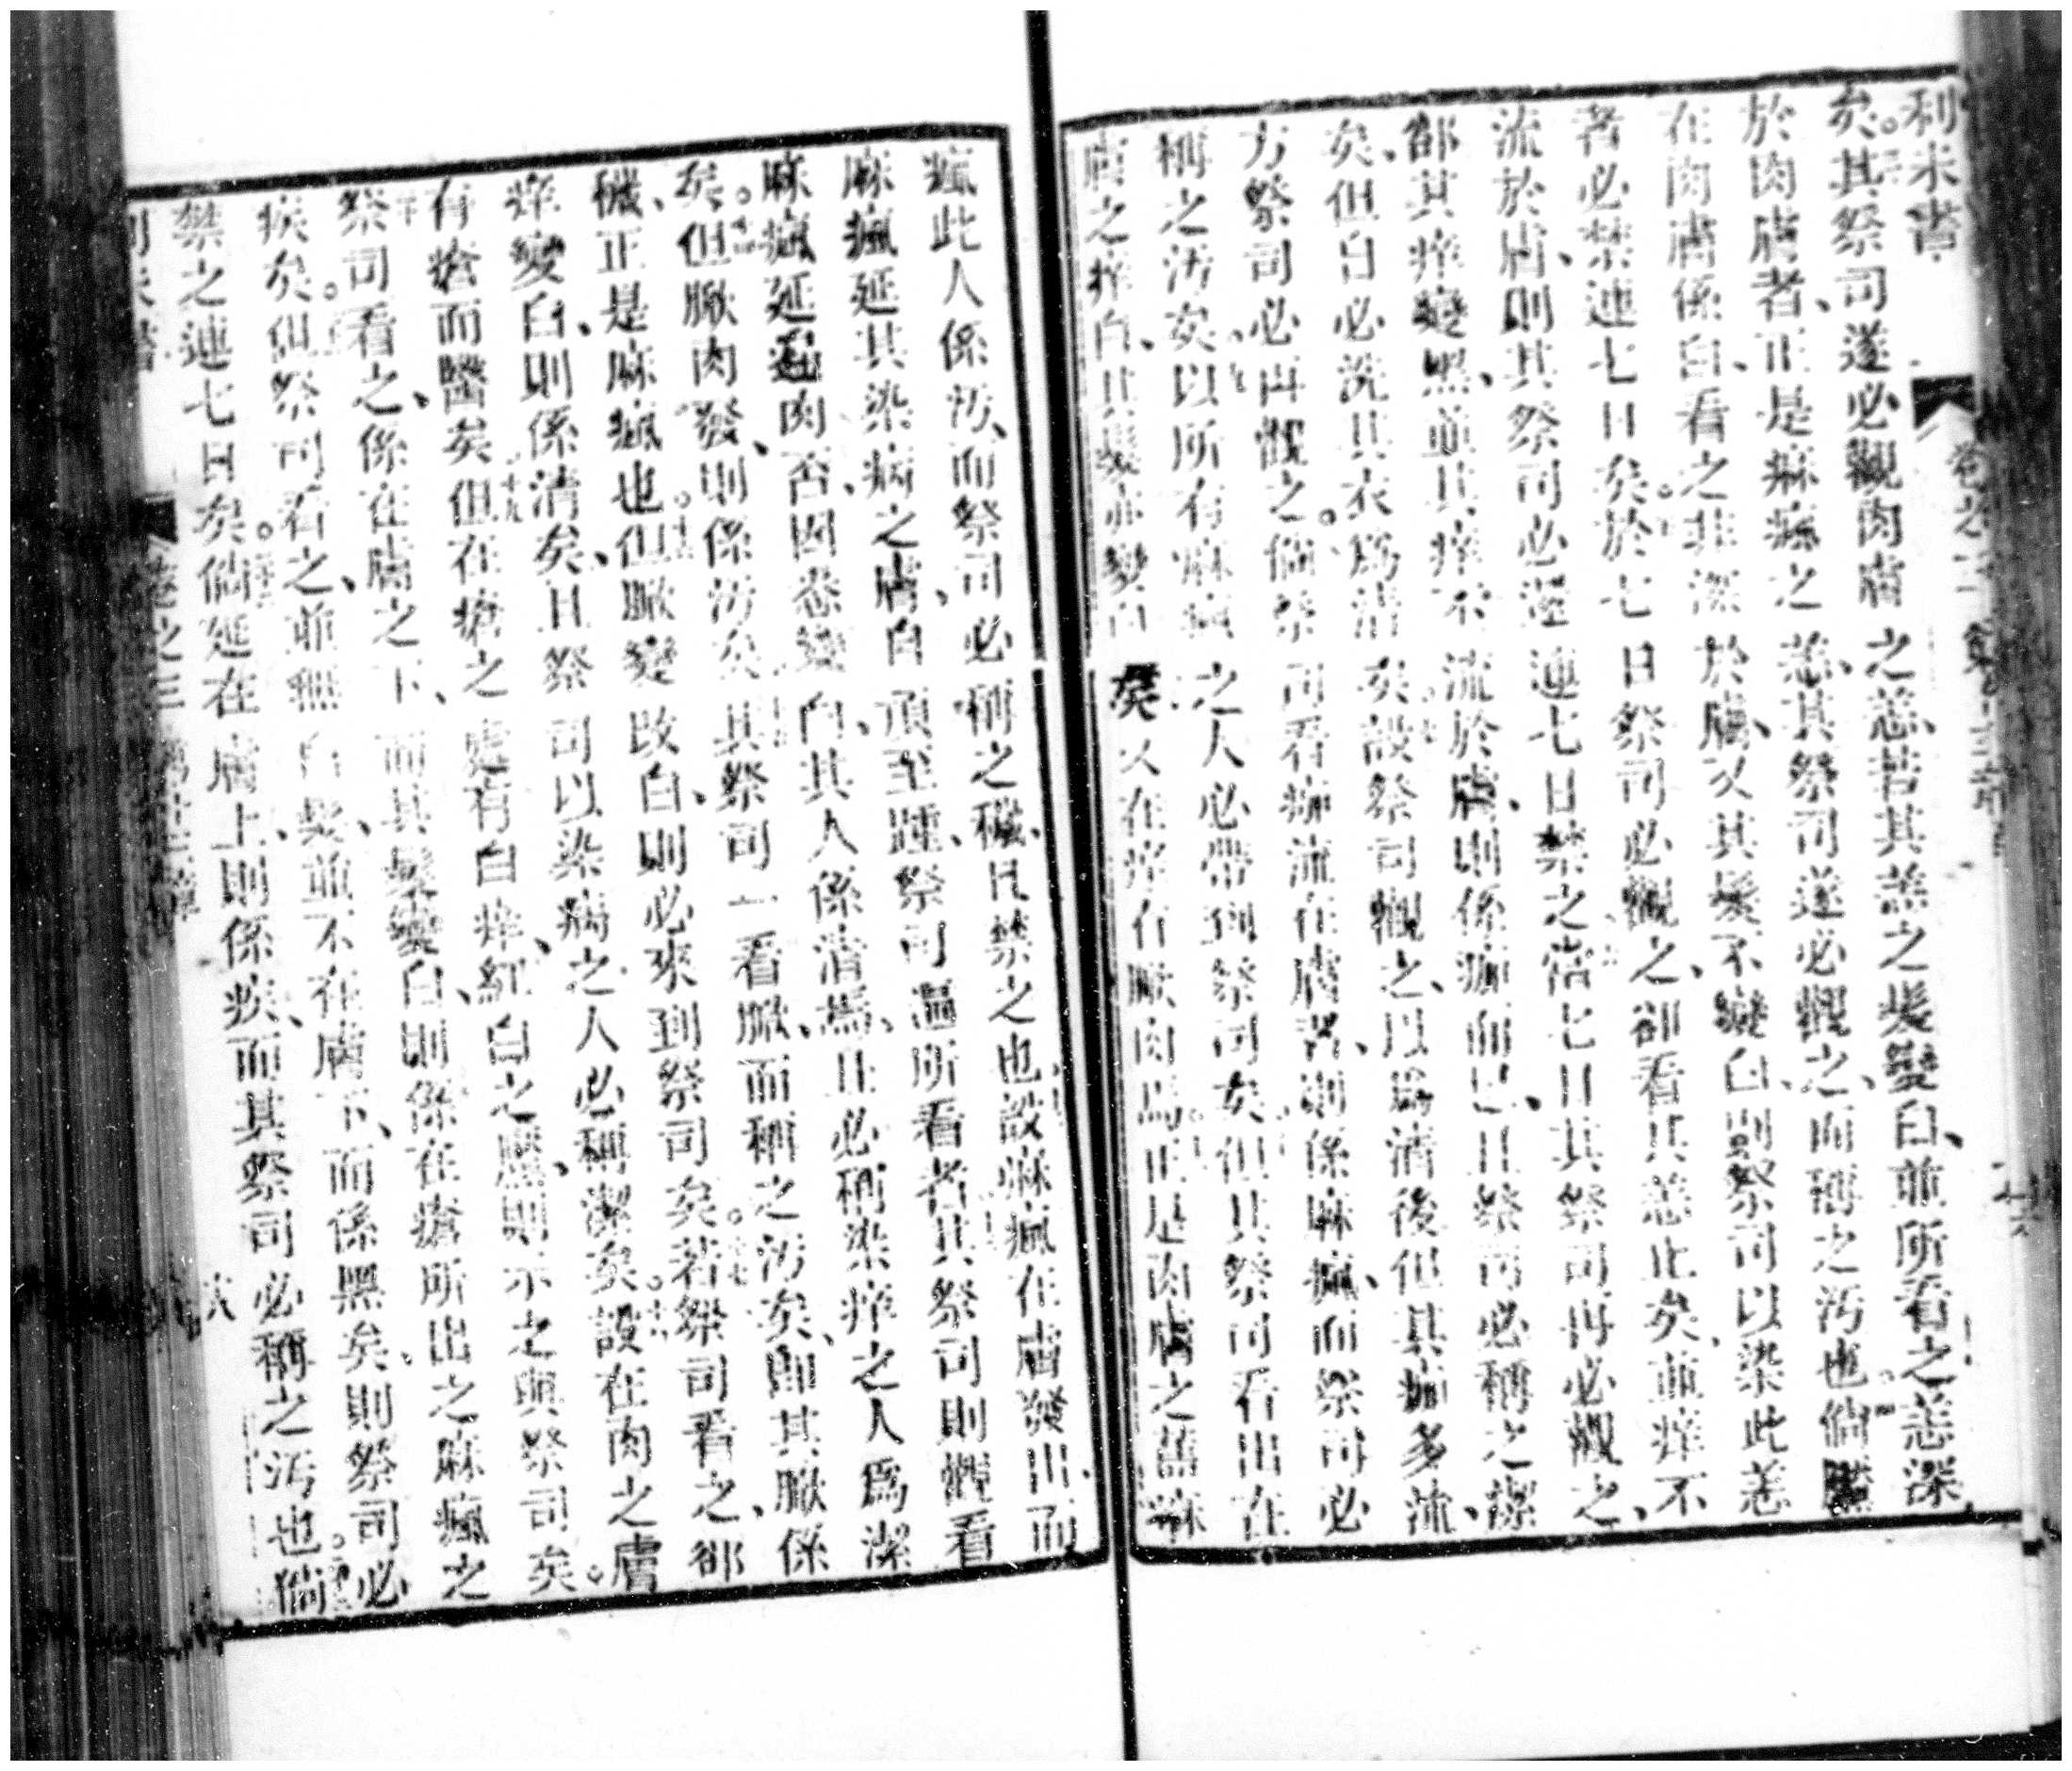 利未書 卷之三 第十三章
矣其祭司遂必觀肉膚之恙若其恙之髮變白並所看之恙深
於肉膚者正是痳瘋之恙其祭司遂必觀之而稱之污也倘
在肉膚係白看之非深於膚又其髮不變白則祭司以染此恙
者必禁連七日矣於七日祭司必觀之卻看其恙止矣並痒不
流於膚則其祭司必再連七日禁之當七日其祭司再必觀之
卻其痒變黑並其痒不流於膚則係癬而已且祭司必稱之潔
矣但自必洗其衣為清矣設祭司觀之以為清後但其癬多流
方祭司必再觀之倘祭司看癬流在膚者則係痳瘋而祭司必
稱之污矣以所有痳瘋之人必帶到祭司矣但其祭司看出在
膚之痒白其髮亦變白矣又在痒有厥肉焉正是肉膚之舊痳
瘋此人係污而祭司必稱之穢且禁之也設痳瘋在膚發出而
痳瘋延其染病之膚自頂至踵祭司遍所看者其祭司則慳看
痳瘋延遍肉否因恙變白其人係清焉且必稱染痒之人為潔
矣但厥肉發則係污矣其祭司一看厥而稱之污矣即其厥係
穢正是痳瘋也但厥變改白則必來到祭司矣若祭司看之卻
痒變白則係清矣且祭司以染病之人必稱潔矣設在肉之膚
有瘡而醫矣但在瘡之處有白痒紅白之黶則示之與祭司矣
祭司看之係在膚之下而其髮變白則係在瘡所出之痳瘋之
疾矣但祭司看之並無白髮並不在膚下而係黑矣則祭司必
禁之連七日矣倘延在膚上則係疾而其祭司必稱之污也倘